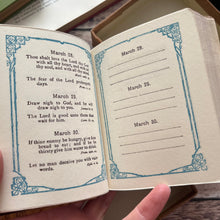 March 28.
Thou shalt love the Lord thy God
with all thy heart, and with all
thy soul, and with all thy mind.
The fear of the Lord prolongeth
days.
March 29.
Draw nigh to God, and he will
draw nigh to you.
The Lord is good unto them that
wait for him.
March 30.
If thine enemy be hungry, give him
bread to eat; and if he be
thirsty give him water to drink.
Let no man deceive you with vain
words.
March 28.
March 29.
March 30.